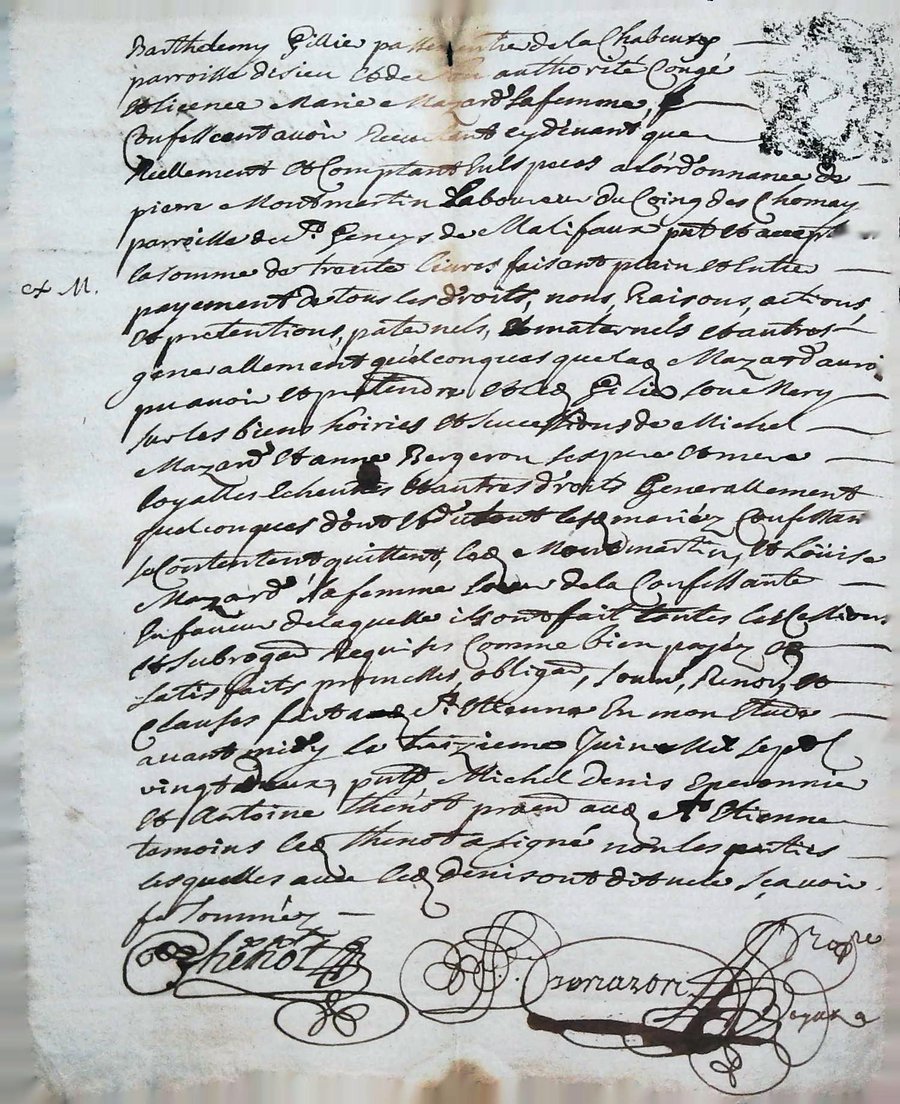 Barthelemy Gillie passementie de la Chabeure
parroisse desieu et de son authorité Congé
et licence Marie Mazard sa femme,
Confessent avoir Receu tant cydevant que
Reellement et Comptant en especes a Lord'onnance de
pierre Montmartin Laboureur du Coing des Chomay
parroisse de St. Geneys de Malifaux pnt et accept
la somme de trente livres faisant plain et Entie
ct M.
payement de tous les droits, noms, Raisons, actions,
et pretentions, paternels, et maternels et autres
generallement quelconques que lad Mazard auroi
pu avoir et pretendre et led Gilie son Mary
sur les biens hoiries et successions de Michel
Mazard et anne Bergeron ses pere et mere
loyalles Echeuttes et autres droits Generallement
quelconques dont et du tout lesd mariéz Confessan
se Contentent quittent, led Montmartin, et Loüise
Mazard sa femme soeur de la Confessante
En faveur de laquelle ils ont fait toutes les Cessions
et subrogaons Requises Comme bien payéz et
satisfaits promesses, obligaons, soum, Renon, et
Clauses fait aud St. Etienne En mon Etude
avant midy le treizieme Juin Mil sept C
vingt deux, pnts Michel Denis Eperonnie
et Antoine Thenot praticien aud St Etienne
temoins led Thenot a signé non les parties
lesquelles avec led Denis ont dit ne le sçavoir
de ce sommés
Thenot